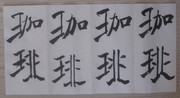 珈珈珈珈
琲琲琲琲